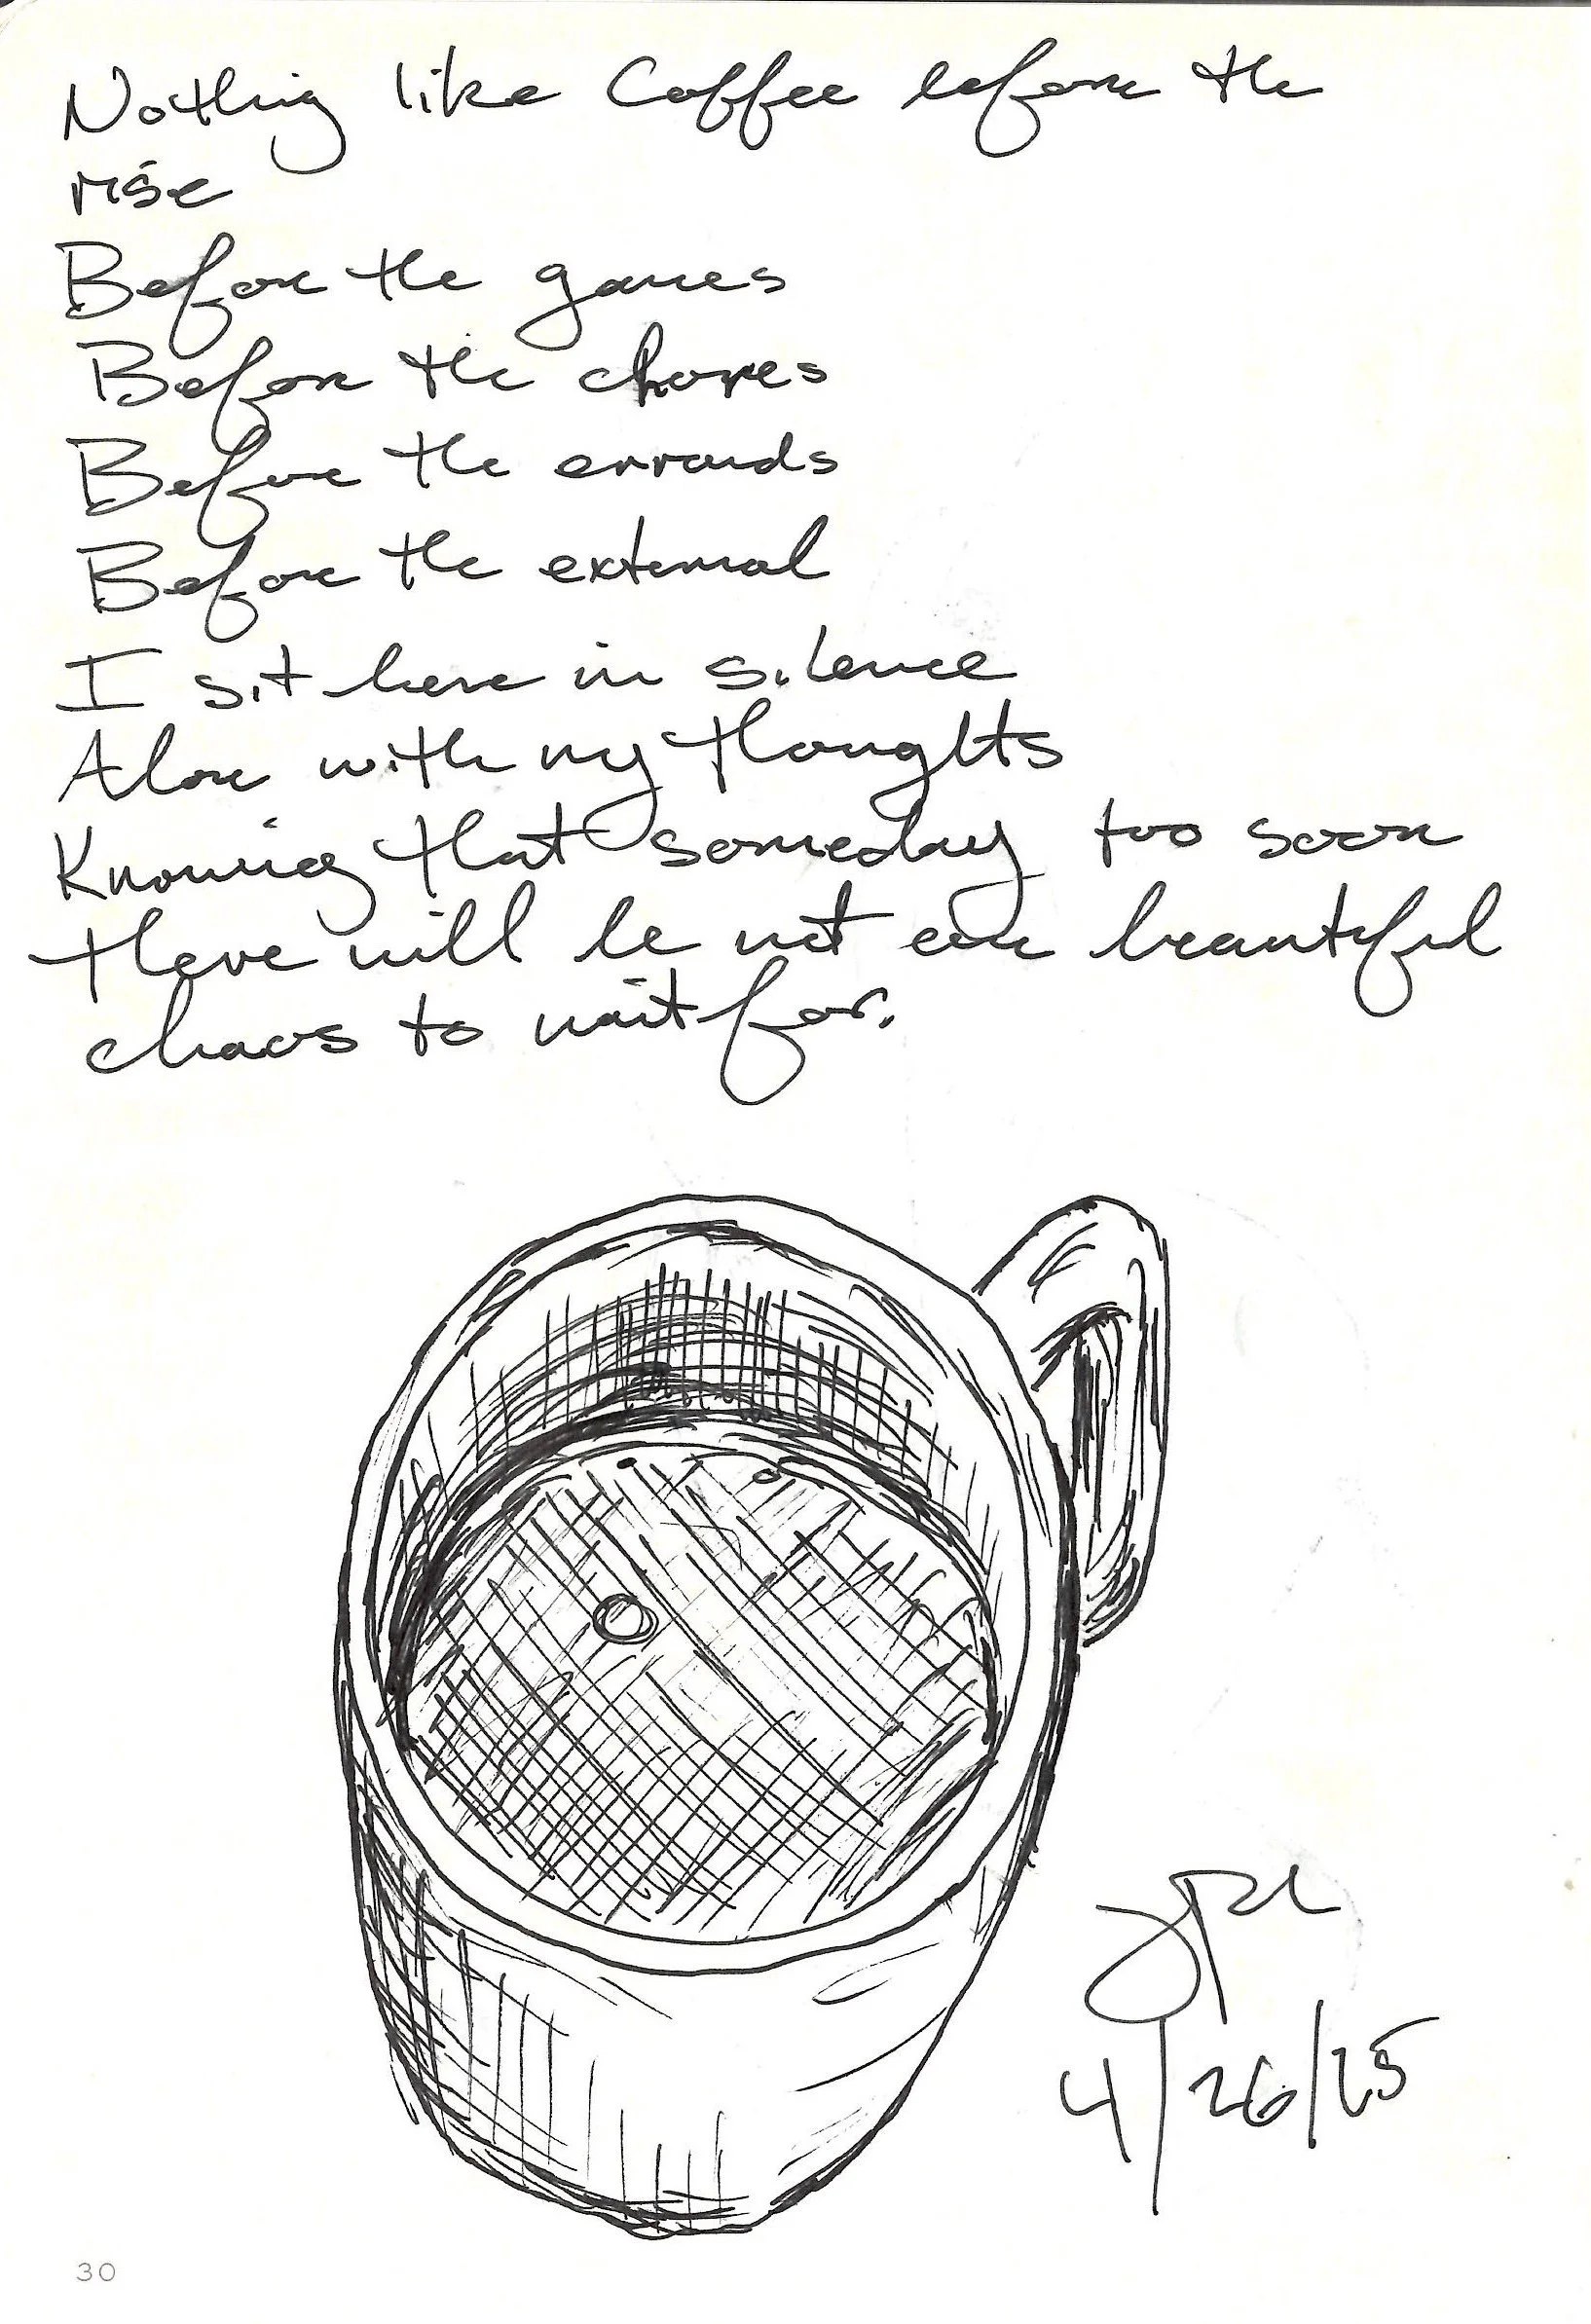 Nothing like Coffee before the
rise
Before the games
Before the chores
Before the errands
Before the external
I sit here in silence
Alone with my thoughts
Knowing that someday too soon
there will be not one beautiful
chaos to wait for.
4/26/25
30